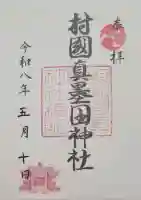 奉拝
村國真墨田神社
令和八年五月十日